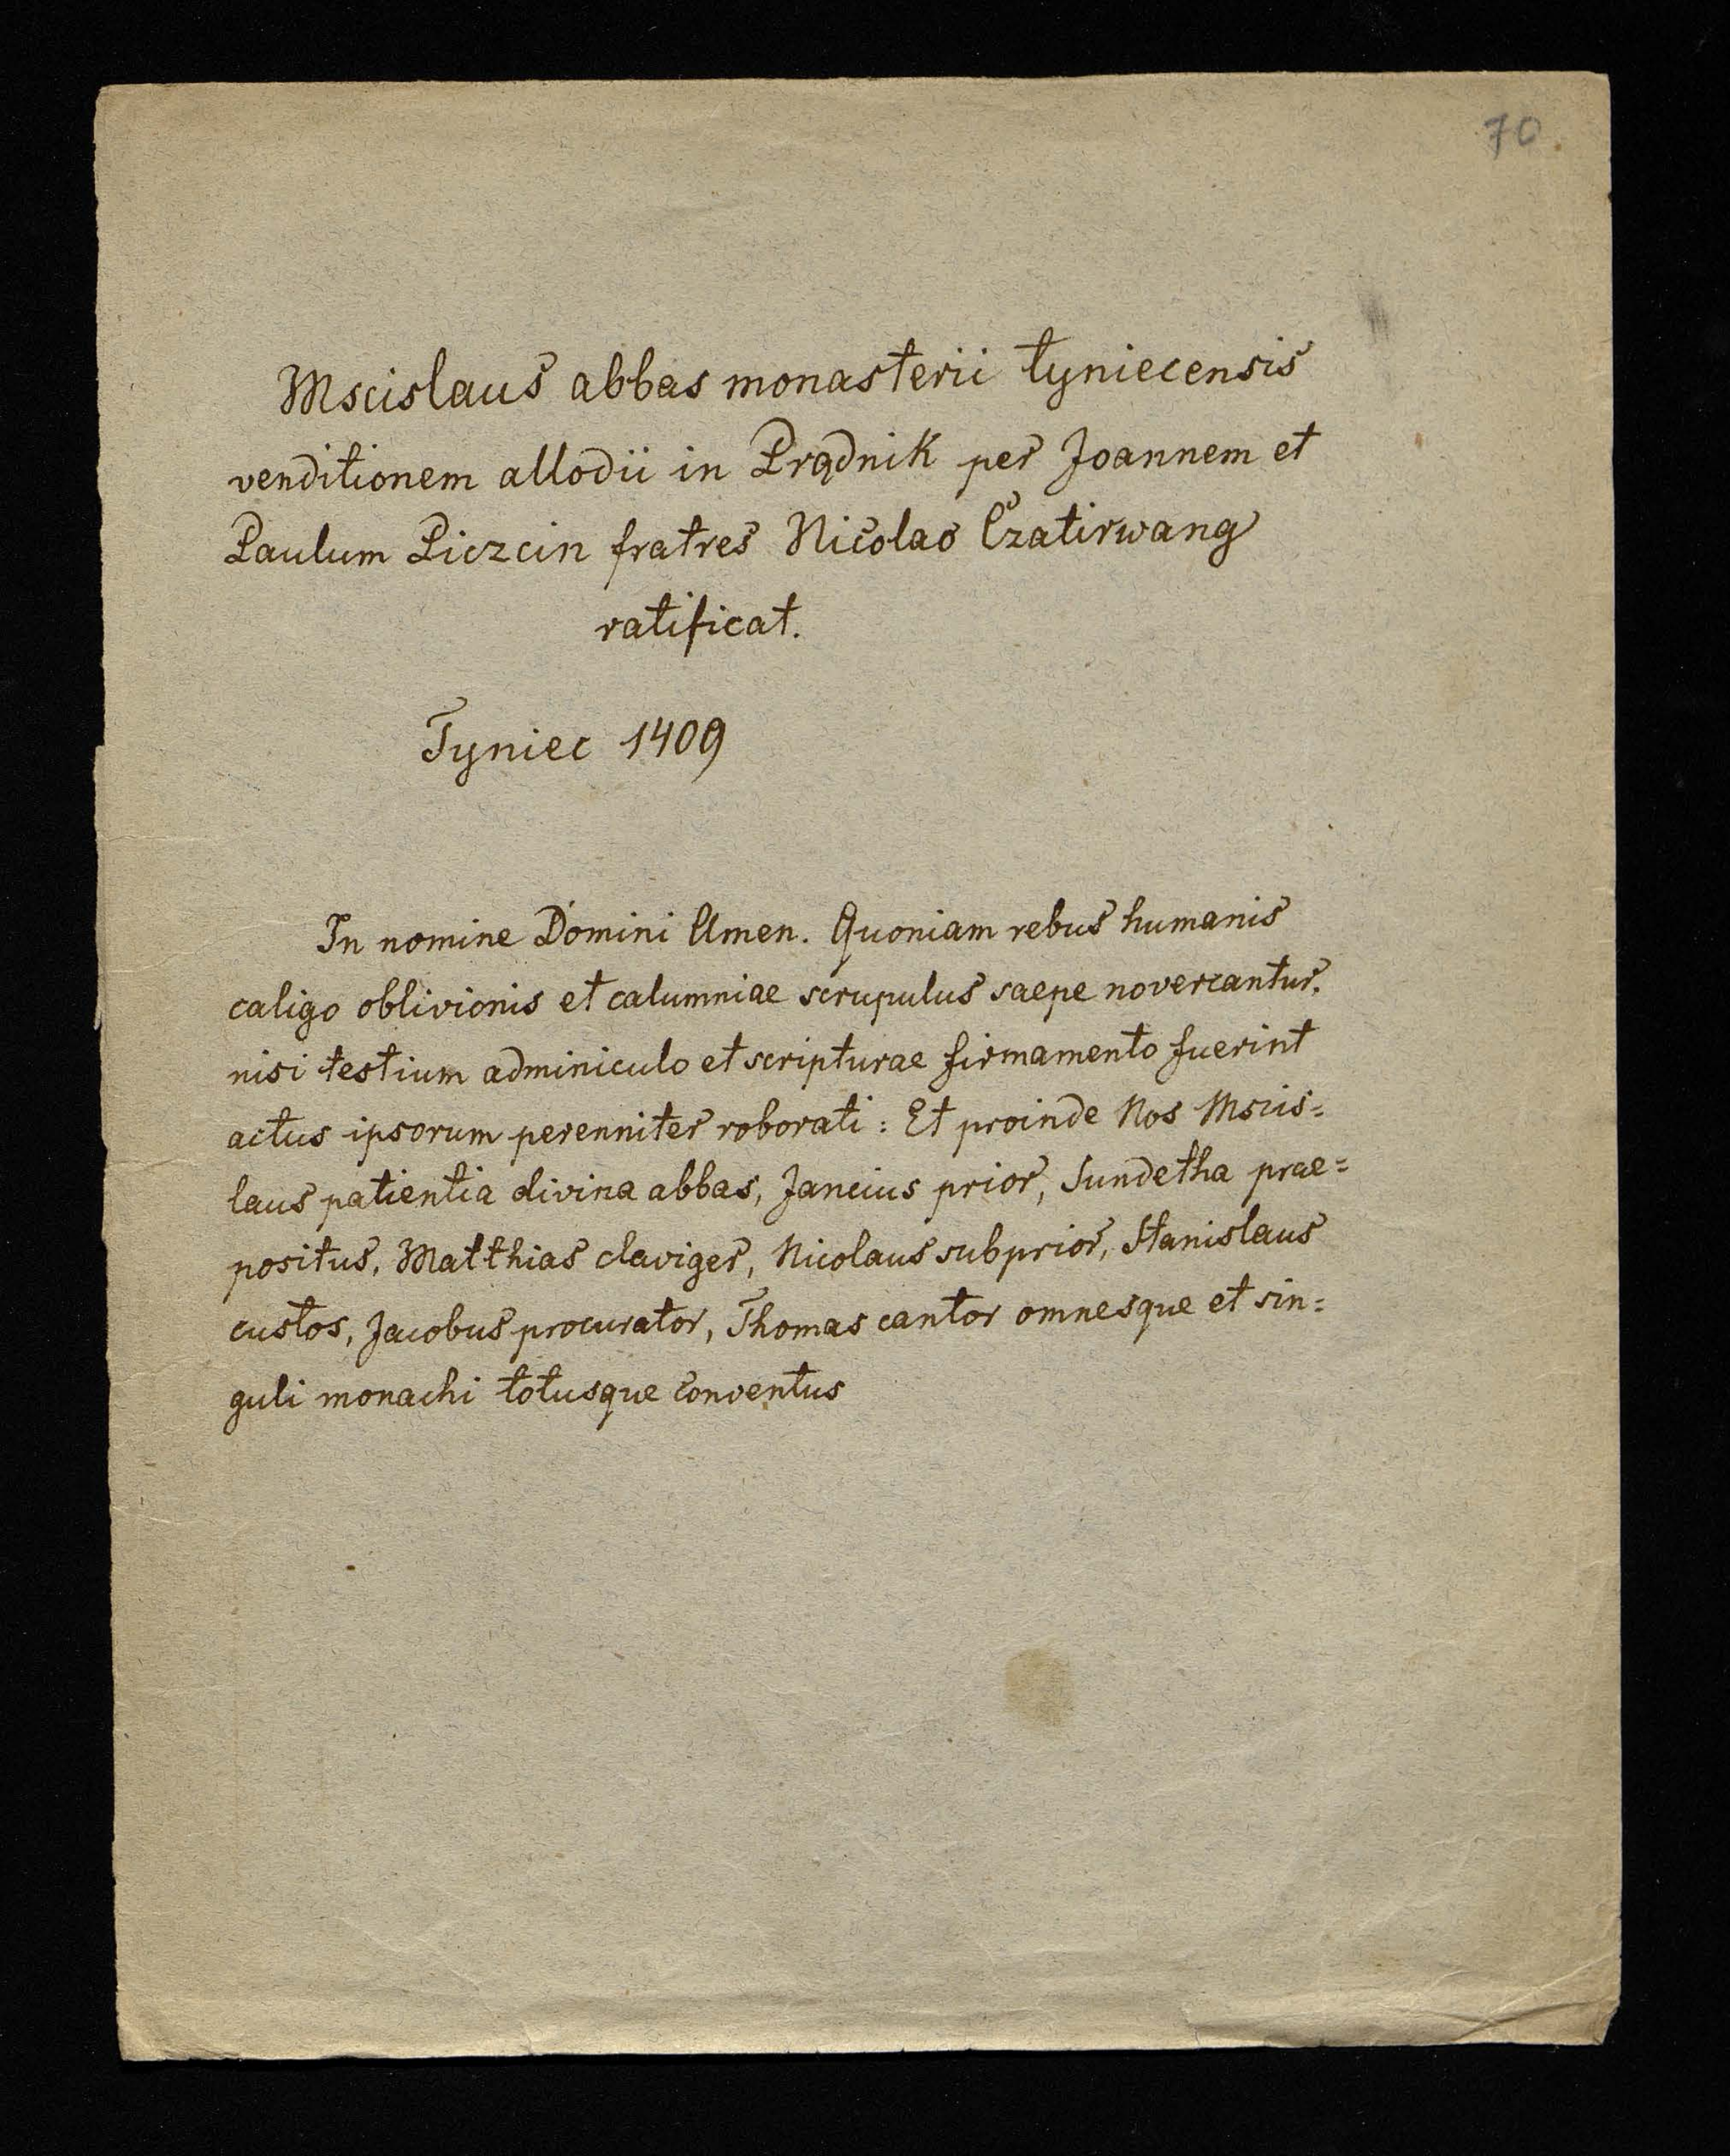 70
Mscislaus abbas monasterii tyniecensis
venditionem allodii in Prądnik per Joannem et
Paulum Piczcin fratres Nicolao Czatirwang
ratificat.
Tyniec 1409
In nomine Domini Amen. Quoniam rebus humanis
caligo oblivionis et calumniae scrupulus saepe novercantur.
nisi testium adminiculo et scripturae firmamento fuerint
actus ipsorum perenniter roborati: Et proinde Nos Mscis=
laus patientia divina abbas, Jancius prior, Sundetha prae=
positus, Matthias claviger, Nicolaus subprior, Stanislaus
custos, Jacobus procurator, Thomas cantor omnesque et sin=
guli monachi totusque Conventus